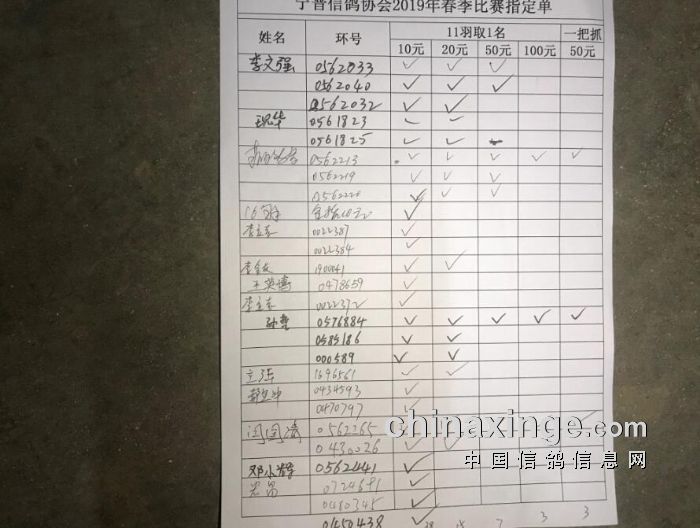 宁晋信鸽协会2019年春季比赛指定单
姓名 环号 11羽取1名 一把抓
10元 20元 50元 100元 50元
李文强 0562033 ✓ ✓ ✓
0562040 ✓ ✓ ✓
0562032 ✓ ✓
0561823 ✓ ✓
0561825 ✓ ✓ ✓
0562213 ✓ ✓ ✓ ✓
0562219 ✓ ✓ ✓
0562220 ✓ ✓ ✓
✓
李立东 0022387 ✓
0022384 ✓
✓ ✓
0478659 ✓
李立东 0022372 ✓
0576884 ✓ ✓ ✓ ✓ ✓
0585186 ✓ ✓
000589 ✓ ✓
1696561 ✓ ✓
0434593 ✓
0470797 ✓
闫国涛 0562265
0430026
邓小辉 0562441 ✓
0724681 ✓
0480345 ✓
0450438 ✓ 7 3 3
chinaxinge.com
中国信鸽信息网